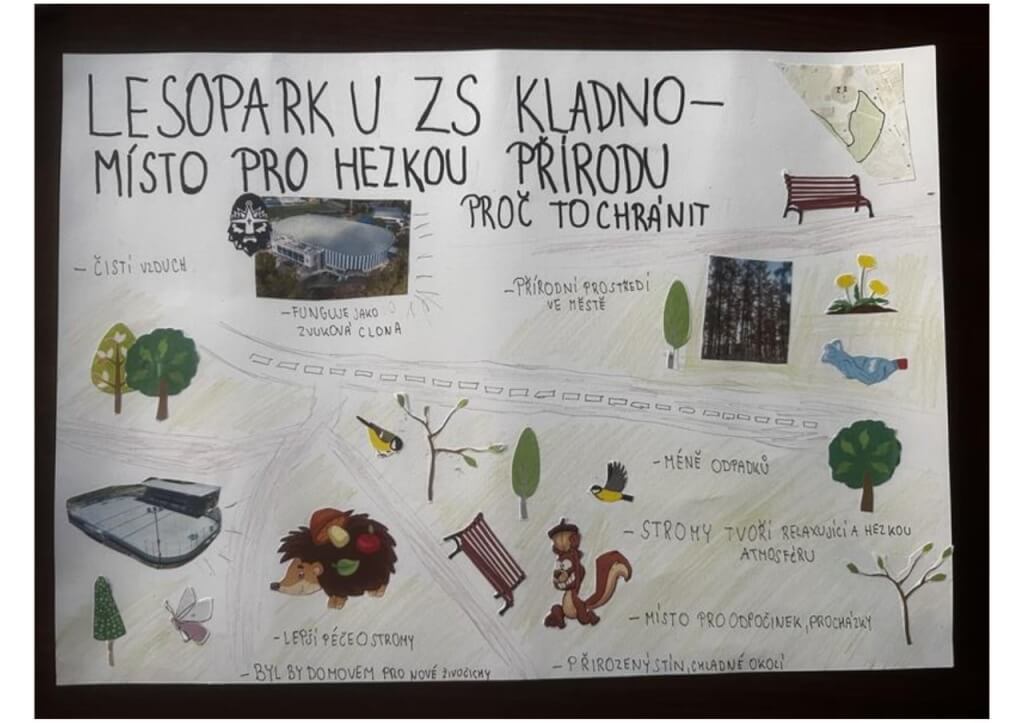 LESOPARK U ZS KLADNO-
MÍSTO PRO HEZKOU PŘÍRODU
PROČ TO CHRÁNIT
- ČISTÍ VZDUCH
- FUNGUJE JAKO
ZVUKOVÁ CLONA
- PŘÍRODNÍ PROSTŘEDÍ
VE MĚSTĚ
- MÉNĚ ODPADKŮ
- STROMY TVOŘÍ RELAXUJÍCÍ A HEZKOU
ATMOSFÉRU
- MÍSTO PRO ODPOČINEK, PROCHÁZKY
- LEPŠÍ PÉČE O STROMY
- BYL BY DOMOVEM PRO NOVÉ ŽIVOČICHY
- PŘIROZENÝ STÍN, CHLADNÉ OKOLÍ